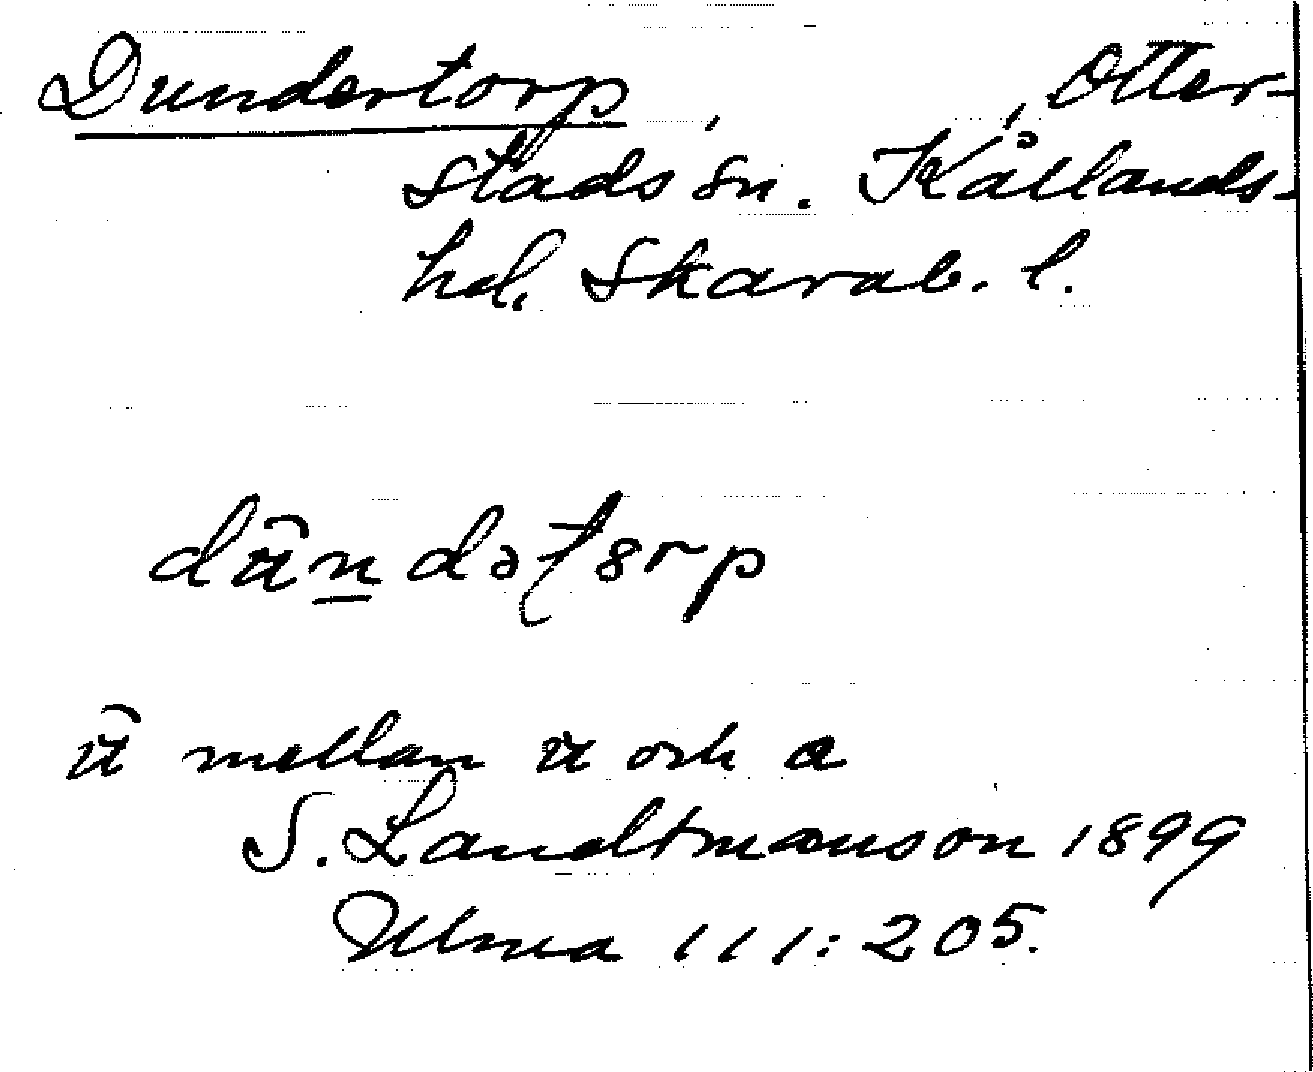 Dundertorp, , Otter-
stads sn. Kållands-
hd. Skarab. l.
dʉ̂n̲dətɵrp
ʉ̂ mellan ʉ och a
S. Landtmanson 1899
Ulma 111:205.